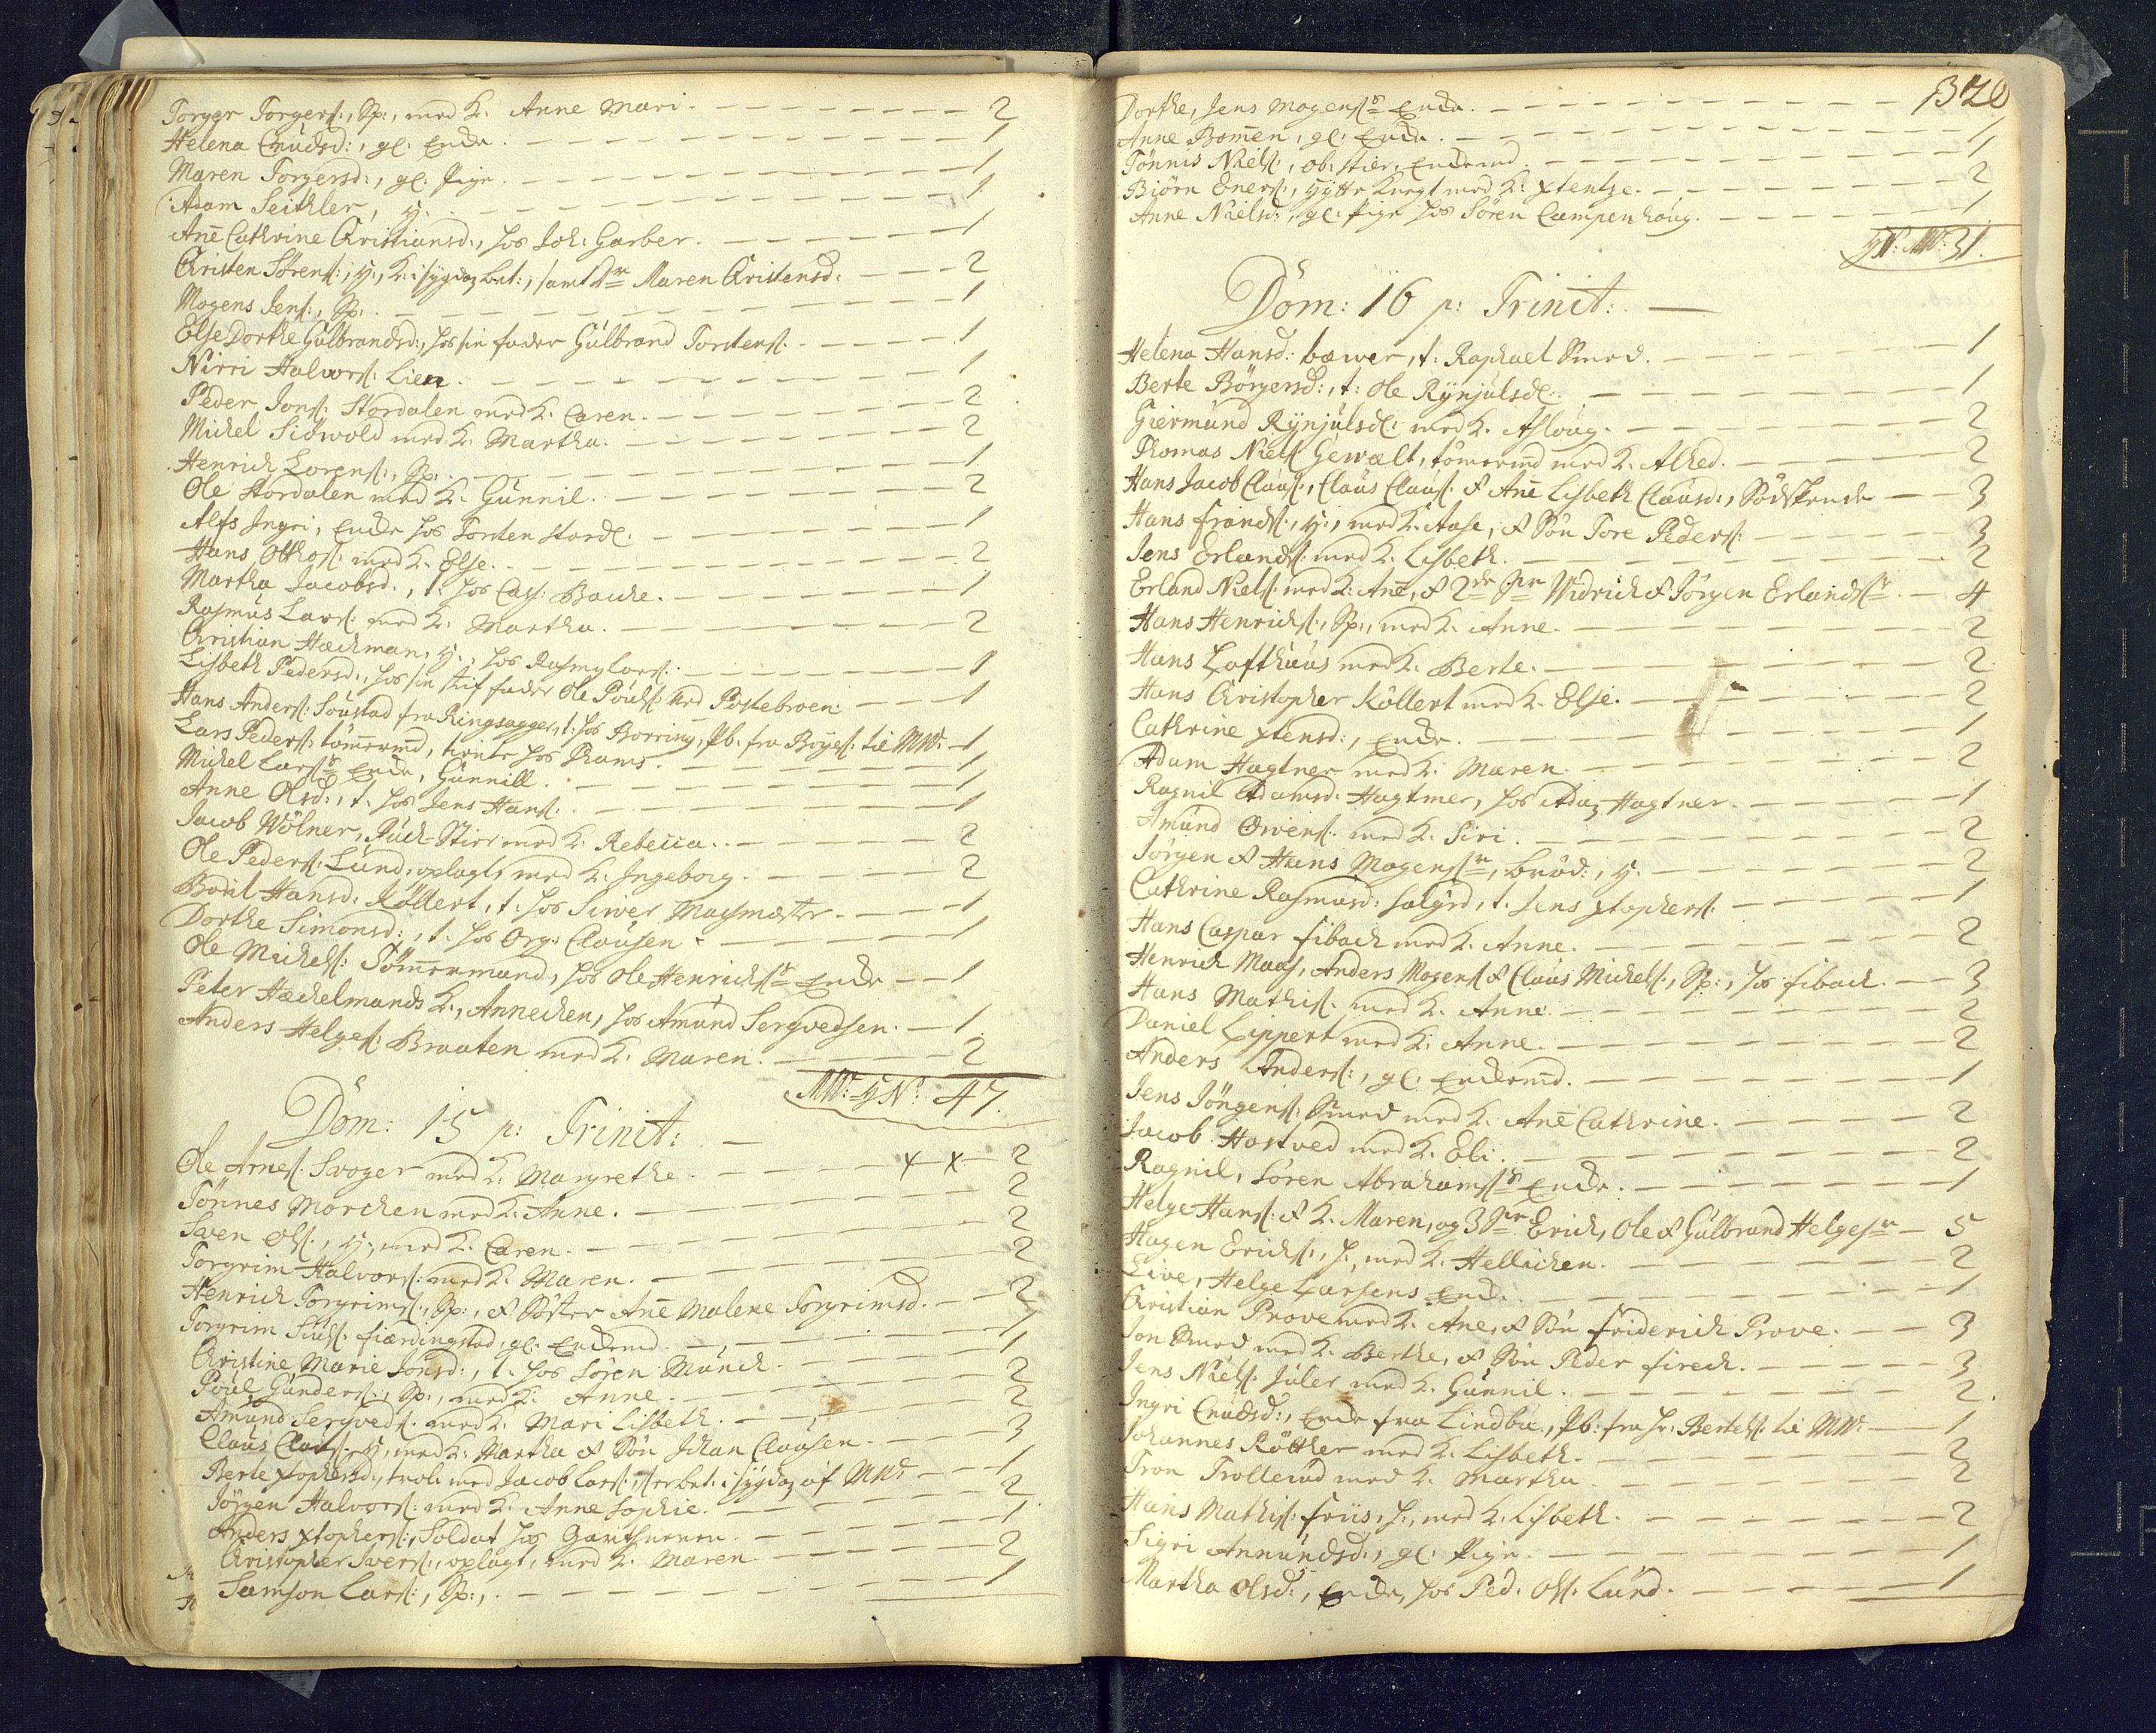 Torger Torgers:, Sp:, med K. Anne Mari. 2
Helena Cnudsd:, gl: Enke. 1
Maren Torgersd:, gl: Pige. 1
Adam Seithler, y. 1
Ane Cathrine Christiansd:, hos Joh: Garber. 1
Christen Sørens:, y:, K: i sygdom bet:, samt Maren Christensd: 2
Mogens Jens:, Sp: 1
Else Dorthe Gulbrandsd:, hos sin fader Gulbrand Torstens: 1
Nirri Halvors: Lien. 1
Peder Jons: Stordalen med K. Caren. 2
Michel Sidwold med K. Martha. 2
Henrich Lorens:, Sp: 1
Ole Stordalen med K. Gunnil. 2
Alfs Ingri, Enke hos Torsten Stord: 1
Hans Otthos: med K. Else. 2
Martha Jacobsd., t. hos Casp: Bache. 1
Rasmus Lars: med K. Martha. 2
Christian Hackman, y., hos Rasmus Lars: 1
Lisbeth Pedersd:, hos sin stiffader Ole Pouls: ved Postebroen 1
Hans Anders: Soustad fra Ringsagger, t: hos Borring, Pb: fra Boyes: til MW: 1
Lars Peders: tømmermd, hos Thams. 1
Michel Larss Enke, Gunnill. 1
Anne Olsd:, t. hos Jens Hans: 1
Jacob Wölner, Puch-Stier med K. Rebecca. 2
Ole Peders: Lund, oplagt, med K. Ingeborg. 2
Boril Hansd. Köllert, t. hos Siver Marsmester. 1
Dorthe Simonsd:, t. hos Org: Clausen 1
Ole Michels: Tömmermand, hos Ole Henrichss Enke 1
Peter Hachelmands K., Annechen, hos Amund Sergvedsen. 1
Anders Helges: Braaten med K. Maren. 2
MW: yN: 47.
Dom: 15 p: Trinit:
Ole Arnes: Svoger med K. Margrethe. x x 2
Tönnes Morchen med K. Anne. 2
Sven Ols:, y:, med K. Caren. 2
Torgrim Halvors: med K. Maren. 2
Henrich Torgrims:, Sp:, & Söster Ane Malene Torgrimsd. 2
Torgrim fierdingstad, gl: Enkemd. 1
Christine Marie Jonsd:, t. hos Sören Munch. 1
Poul Gunders:, Sp:, med K. Anne. 2
Amund Sergveds: med K. Mari Lisbeth. 2
Claus Claus:, y, med K: Martha & Sön Johan Clausen. 3
Berte xstophersd:, trol: med Jacob Lars:, bet: i sygdom af MW: 1
Jörgen Halvors: med K. Anne Sophie. 2
Anders xstophers:, Soldat hos 1
Christopher Ivers:, oplagt, med K. Maren. 2
Samson Lars:, Sp:, 1
320
Dorthe, Jens Mogenss Enke. 1
Anne Bomen, gl: Enke. 1
Tönnis Niels:, ob: stier, Enkemd. 1
Biörn Eners:, hytte knegt med K. xstentze. 2
Anne Nielsd:, gl: Pige hos Sören Campenhaug. 1
yN: MW: 31.
Dom: 16 p: Trinit:
Helena Hansd: bæwer, t. Raphael Smed. 1
Berte Börgersd:, t: Ole Rynjulsd: 1
Giermund Rynjulsd: med K. Aslaug. 2
Thomas Niels: Gewalt, tömermd med K. Alhed. 2
Hans Jacob Claus:, Claus Claus: & Ane Lisbeth Clausd:, Södskende 3
Hans frands:, y:, med K. Aase, & Sön Tore Peders: 3
Jens Erlands: med K. Lisbeth. 2
Erland Niels: med K: Ane, & 2de Widrich & Jörgen Erlands: 4
Hans Henrichs:, Sp:, med K. Anne. 2
Hans Lofthuus med K. Berte. 2
Hans Christopher Köllert med K. Else. 2
Cathrine xstensd:, Enke. 1
Adam Hagtner med K. Maren 2
Ragnil Adamsd. Hagtner, hos Adam Hagtner. 1
Amund Ovens: med K. Siri. 2
Jörgen & Hans Mogens:, bröd:, y. 2
Cathrine Rasmusd: t. Jens xstophers: 1
Hans Caspar fibach med K. Anne. 2
Henrich Maas, Anders Mogens: & Claus Michels:, Sp:, hos fibach. 3
Hans Mathis: med K. Anne. 2
Daniel Lippert med K. Anne. 2
Anders Anders:, gl: Enkemd. 1
Jens Jöngens: Smed med K. Ane Cathrine. 2
Jacob Hostved med K. Eli. 2
Ragnil, Sören Abrahamss Enke. 1
Helge Hans: & K. Maren, og 3 Erich, Ole & Gulbrand Helges: 5
Hagen Erichs:, med K. Hellichen. 2
Live, Helge Larsens Enke. 1
Christian Prove med K. Ane, & Sön friderich Prove. 3
Jon Smed med K. Berthe, & Sön Peder firech. 3
Jens Niels: Juler med K. Gunnil. 2
Ingri Cnudsd:, Enke fra Lindbu, Pb: fra Hr: Bertels: til MW: 1
Johannes Rötther med K. Lisbeth. 2
Tron Trollerud med K. Martha. 2
Hans Mathis: friis, med K. Lisbeth. 2
Sigri Annundsd:, gl. Pige. 1
Martha Olsd:, Enke, hos Ped: Ols: Lund. 1